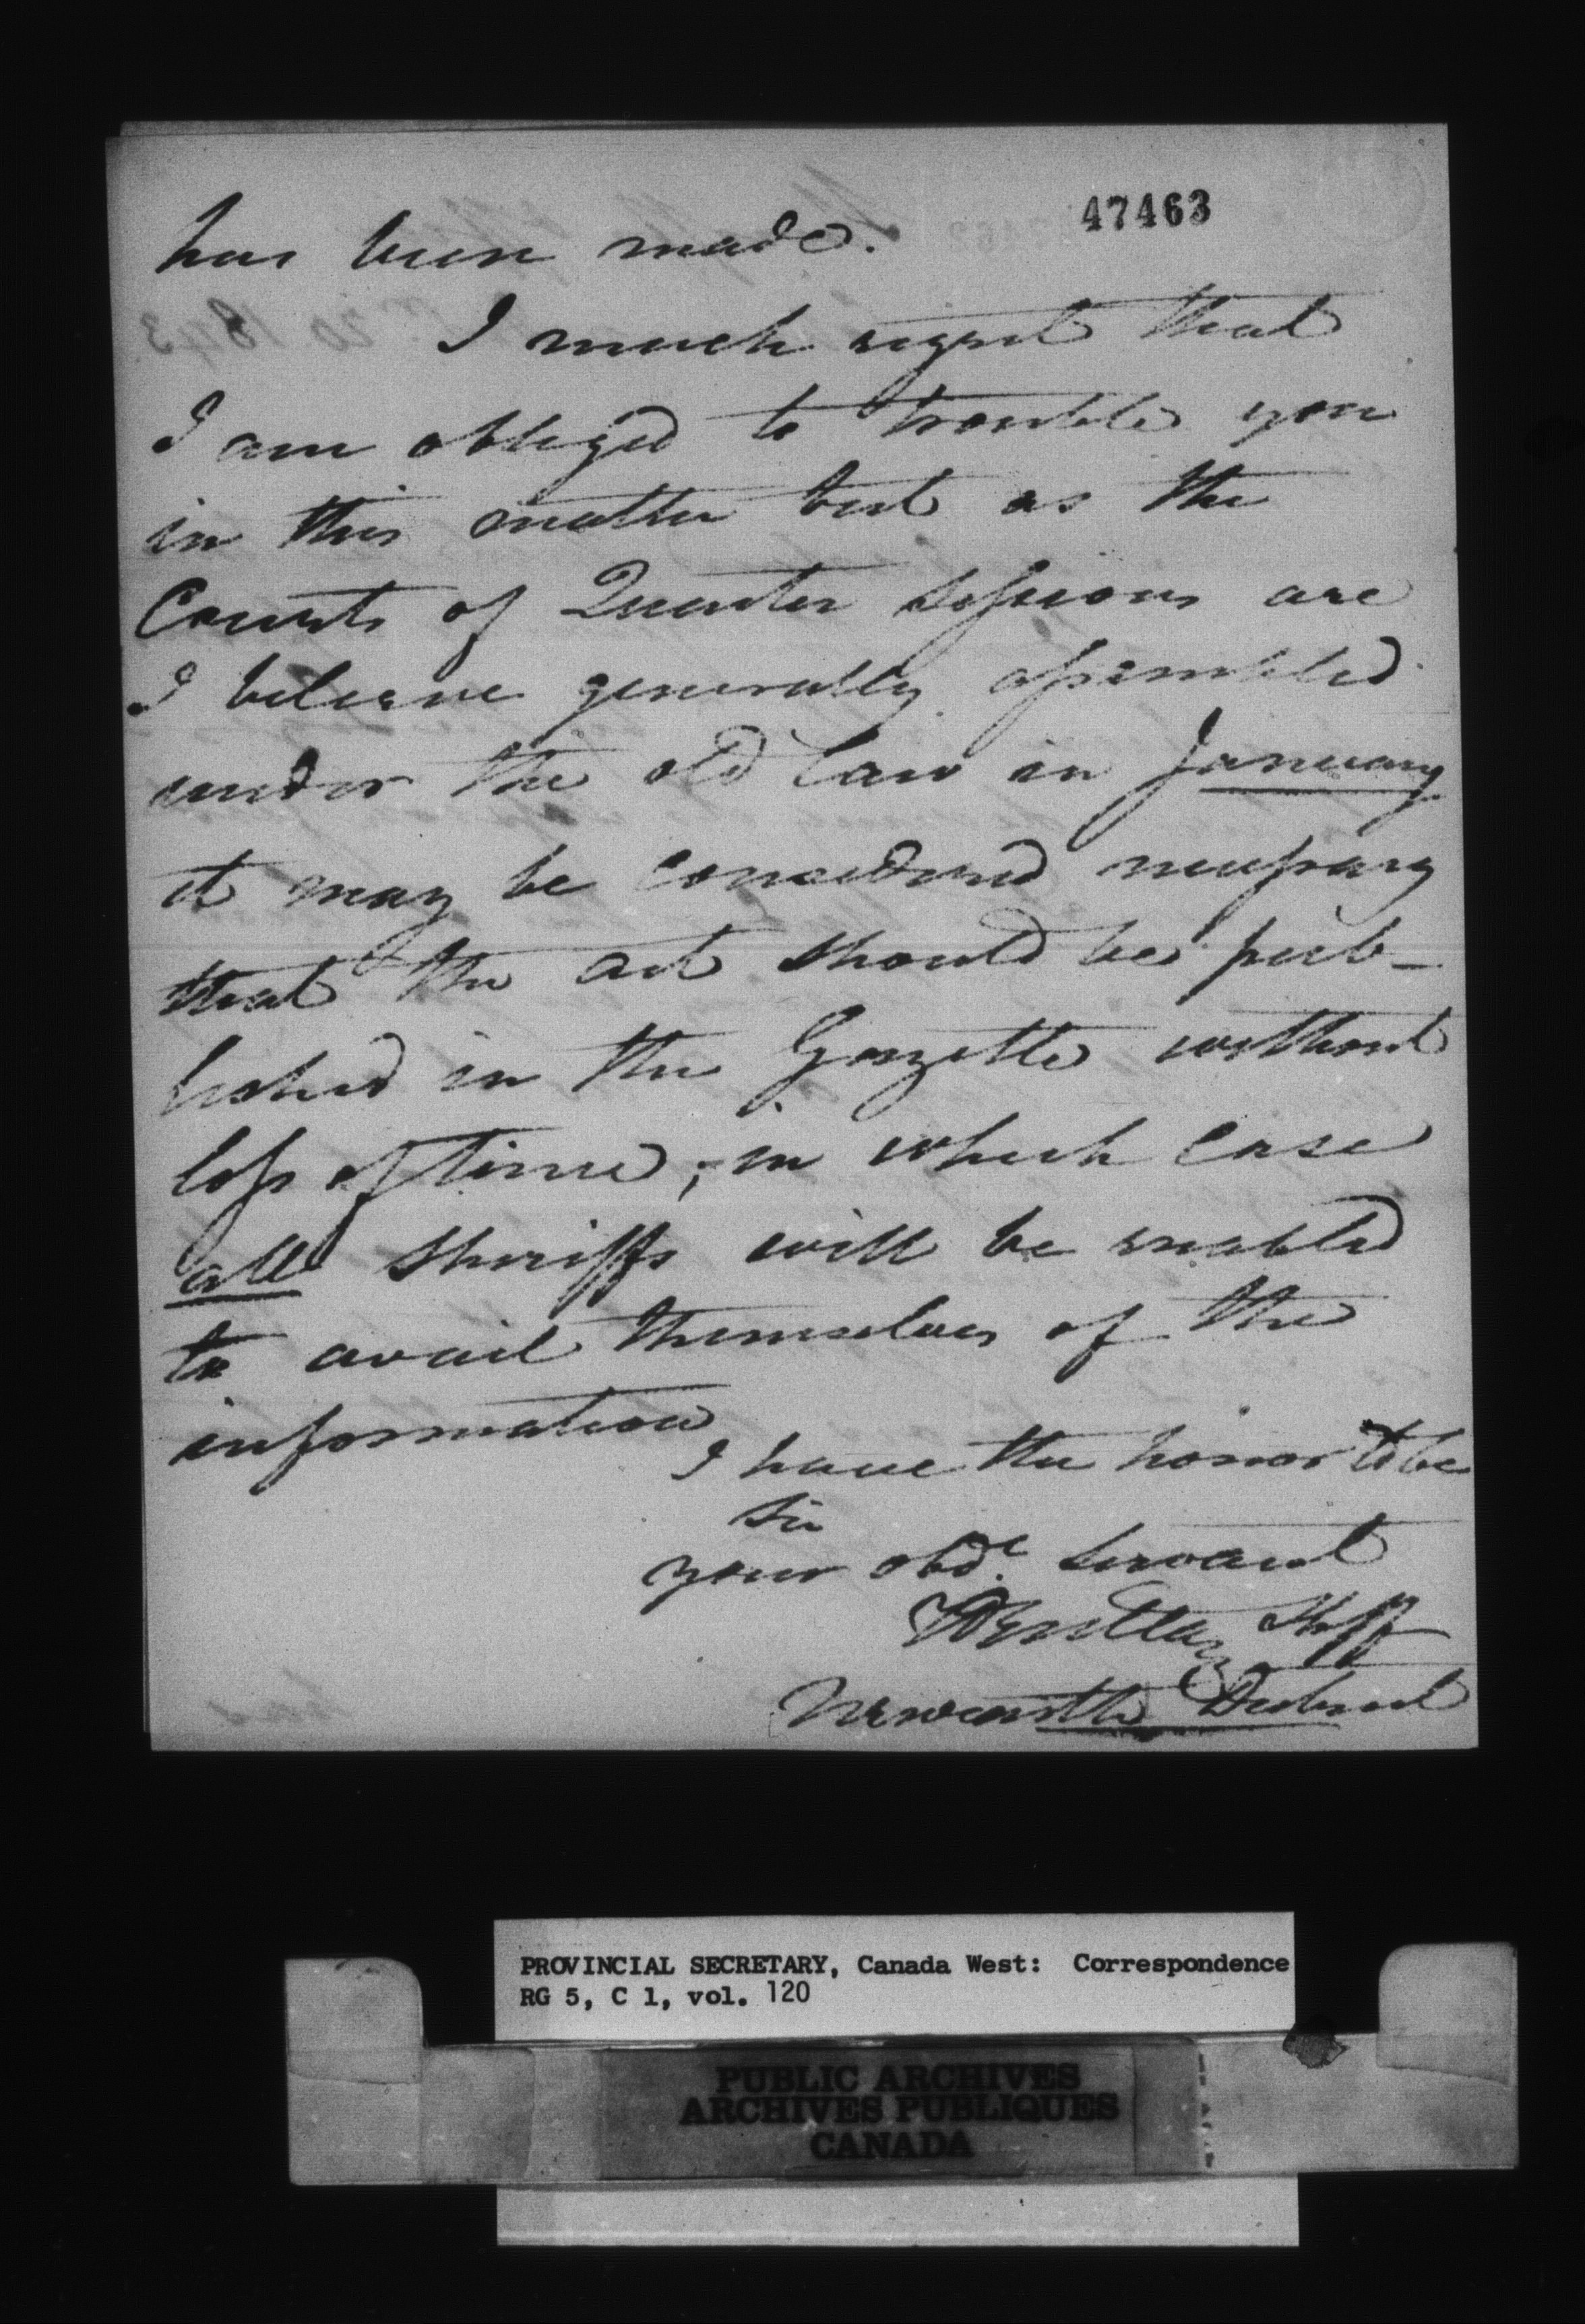 47463
has been made.
I much regret that
I am obliged to trouble you
in this matter but as the
Courts of Quarter Sessions are
I believe generally assembled
under the old law in January
it may be considered necessary
that the act should be pub-
lished in the Gazette without
loss of time; in which case
all Sheriffs will be enabled
to avail themselves of the
information
I have the honor to be
Sir
your obdt. Servant
Shff
Newcastle District
PROVINCIAL SECRETARY, Canada West: Correspondence
RG 5, C 1, vol. 120
PUBLIC ARCHIVES
ARCHIVES PUBLIQUES
CANADA